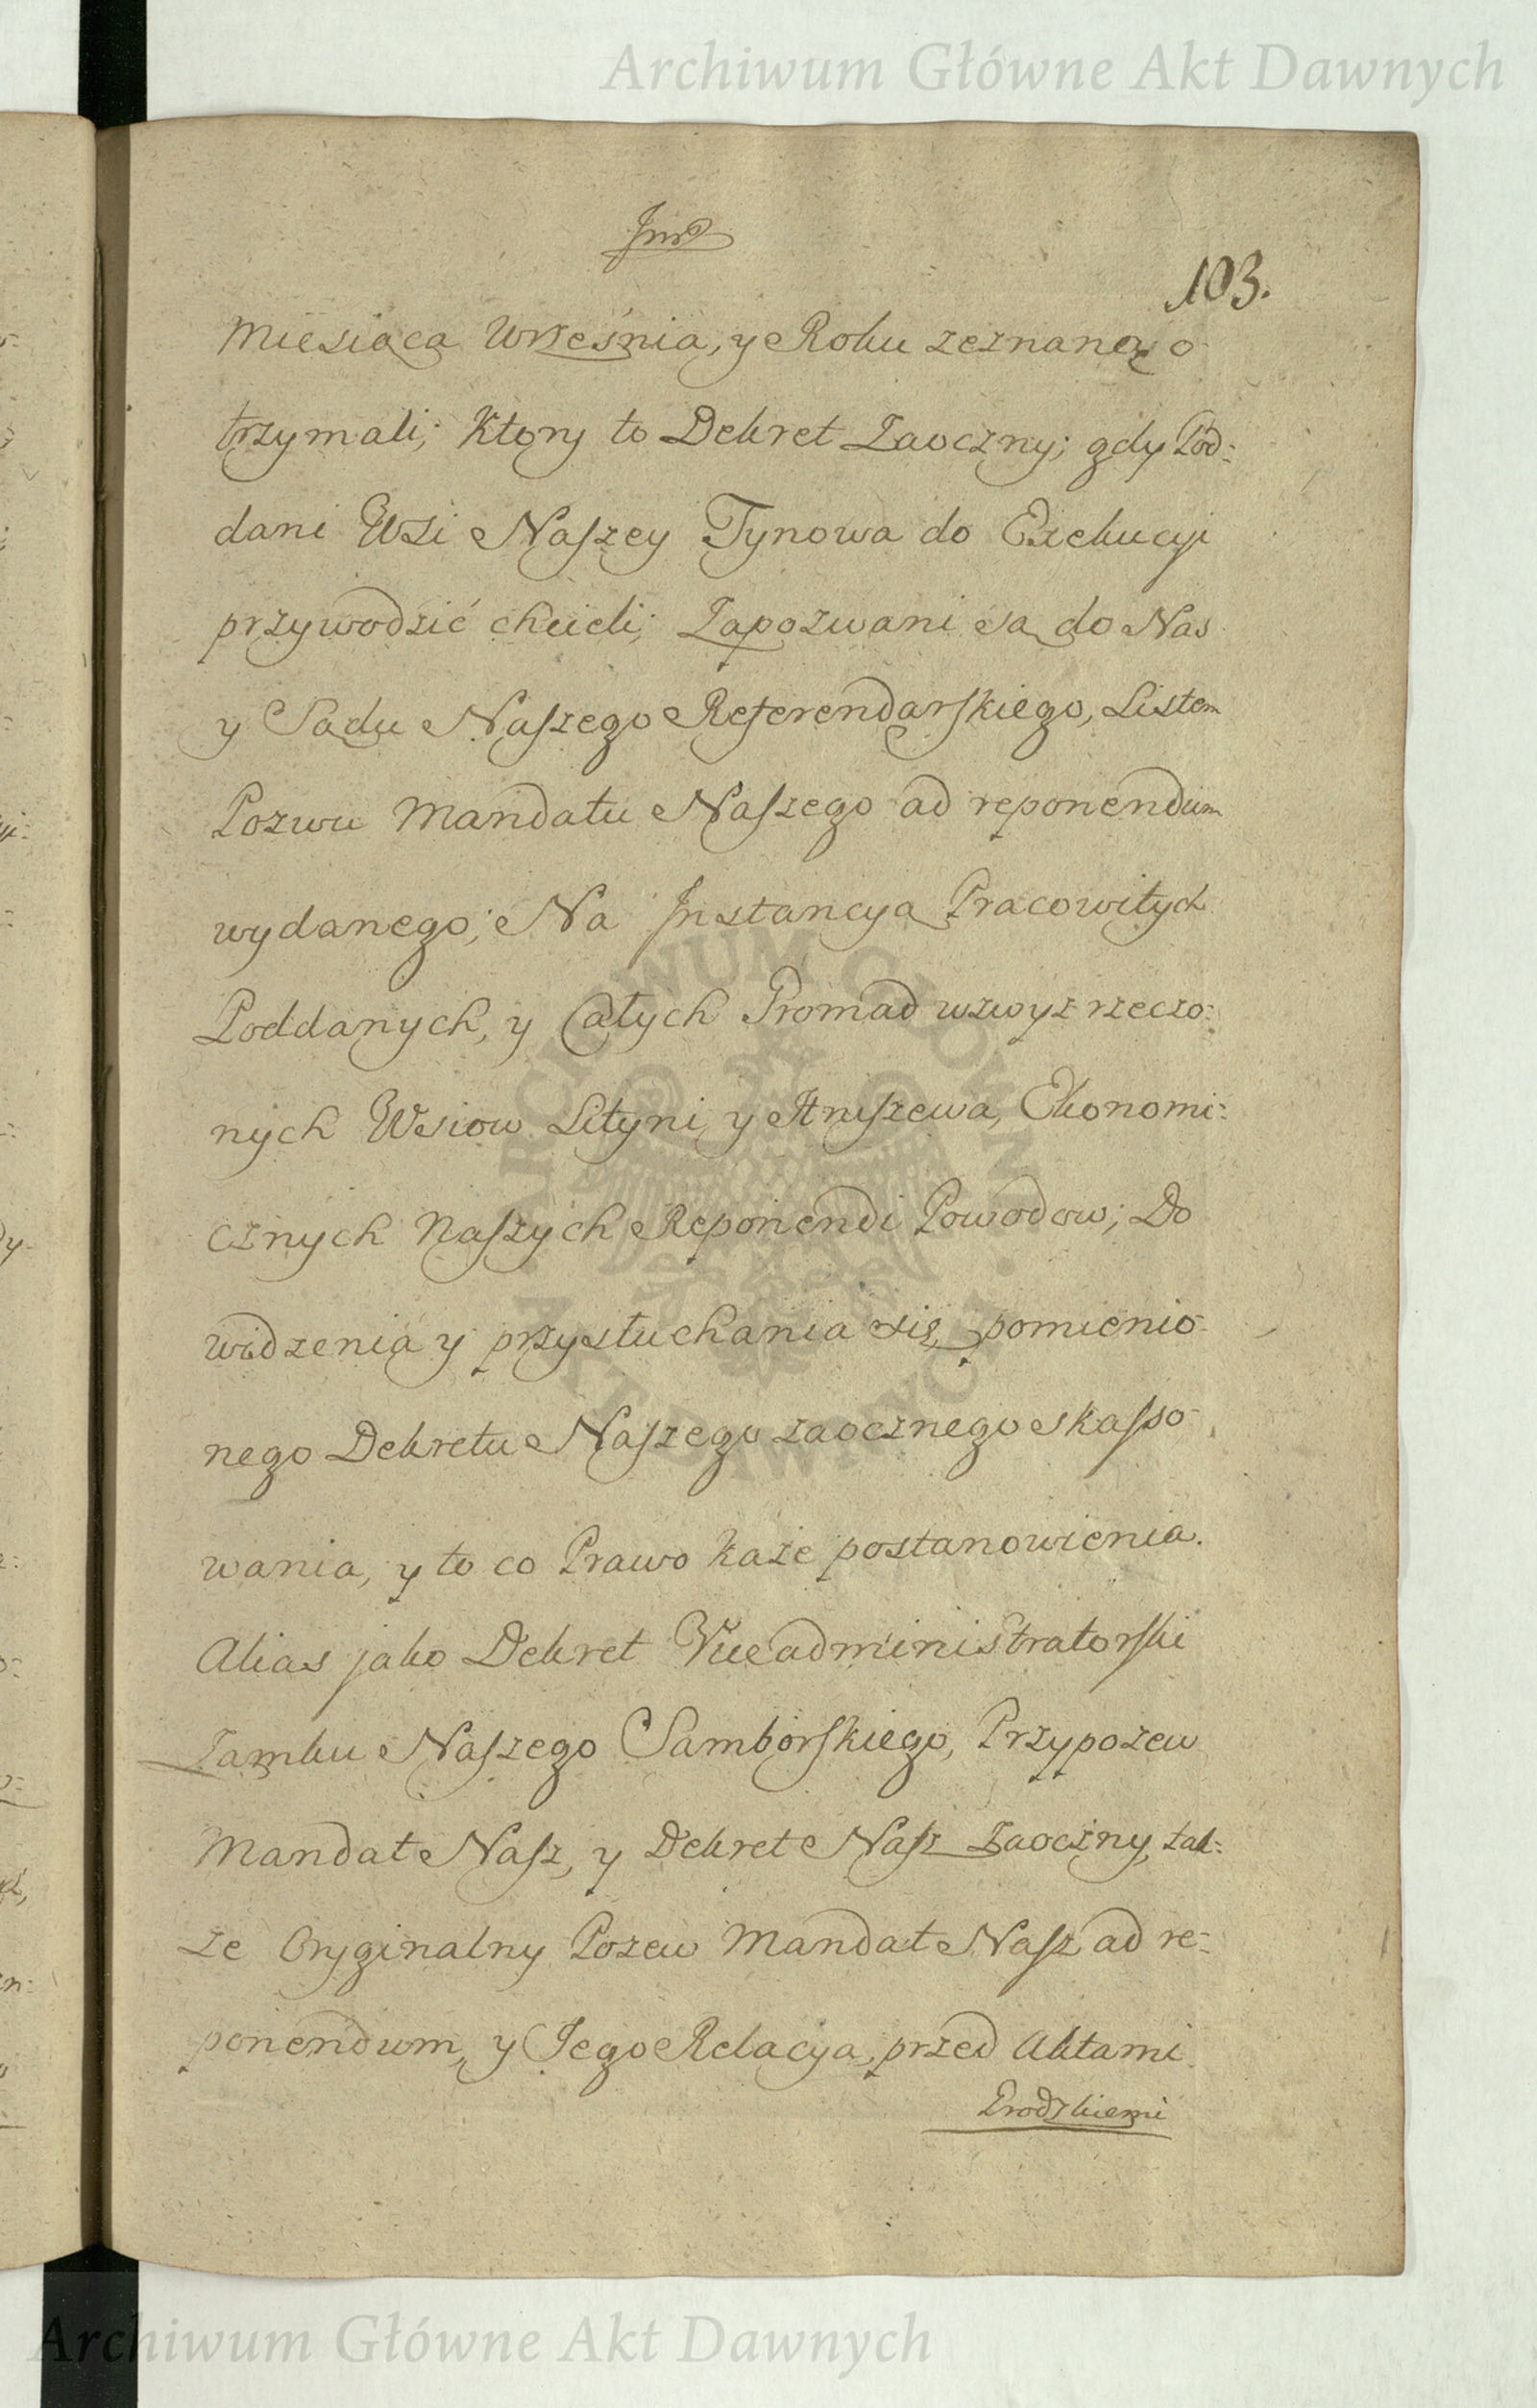 Archiwum Główne Akt Dawnych
103.
Miesiąca Wrzesnia, y Roku zeznaney o
trzymali; Ktory to Dekret Zaoczny; gdy Pod=
dani Wsi Naszey Tynowa do Exekucyi
przywodzić chcieli; Zapozwani są do Nas
y Sądu Naszego Referendarskiego, Listem
Pozwu Mandatu Naszego ad reponendum
wydanego; Na Jnstancyą Pracowitych
Poddanych, y Całych Gromad wzwyż rzeczo=
nych Wsiow Lityni y Hruszewa, Ekonomi=
cznych Naszych Reponendi Powodow; Do
widzenia y przysłuchania się, pomienio-
nego Dekretu Naszego zaocznego skasso-
wania, y to co Prawo każe postanowienia.
Alias jako Dekret Viceadministratorski
Zamku Naszego Samborskiego, Przypozew
Mandat Nasz, y Dekret Nasz Zaoczny, tak=
że Oryginalny Pozew Mandat Nasz ad re=
ponendum, y Jego Relacya, przed Aktami
Grodzkiemi
ARCHIWUM GŁÓWNE
AKT DAWNYCH
Archiwum Główne Akt Dawnych